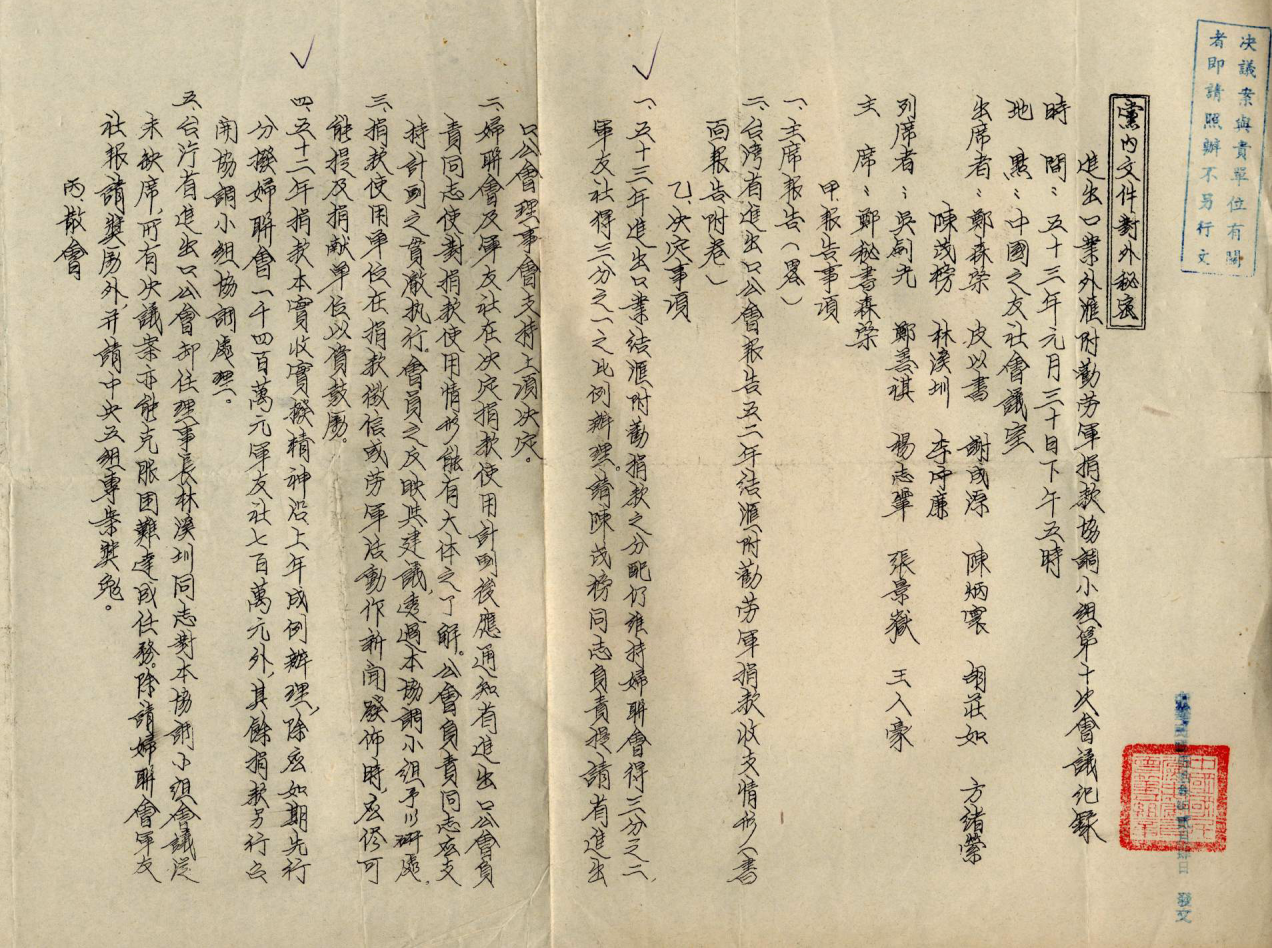 决議案與貴單位有關
者即請照辦不另行文
黨內文件對外秘密
進出口業外滙附勸勞軍捐款協調小組第十次會議紀錄
時　間：五十三年元月三十日下午五時
地　點：中國之友社會議室
出席者：鄭森棨　皮以書　謝成源　陳炳寰　胡莊如　方緒縈
陳茂榜　林溪圳　李沛廉
列席者：吳劍光　鄭善祺　楊志鞏　張景嶽　王人豪
主　席：鄭秘書森棨
甲、報告事項
一、主席報告（畧）
二、台湾省進出口公會報告五二年結滙附勸勞軍捐款收支情形（書
面報告附卷）
乙、决定事項
一、五十三年進出口業結滙附勸捐款之分配仍維持婦聯會得三分之二、
軍友社得三分之一之比例辦理。請陳茂榜同志負責提請省進出
口公會理事會支持上項决定。
二、婦聯會及軍友社在决定捐款使用計劃後應通知省進出口公會負
責同志使對捐款使用情形能有大体之了解。公會負責同志应支
持計劃之貫澈执行。會員之反映共建議，透過本協調小組予以研處。
三、捐款使用单位在捐款徵信或劳軍活動作新聞發佈時，应儘可
能提及捐献单位以資鼓勵。
四、五十二年捐款本實收實撥精神沿上年成例辦理，除应如期先行
分撥婦聯會一千四百萬元軍友社七百萬元外，其餘捐款另行召
開協調小組協調處理。
五、台湾省進出口公會卸任理事長林溪圳同志對本協調小組會議從
未缺席，所有决議案亦能克服困難達成任務。除請婦聯會軍友
社報請獎勵外并請中央五組專案獎勉。
丙、散會
發文